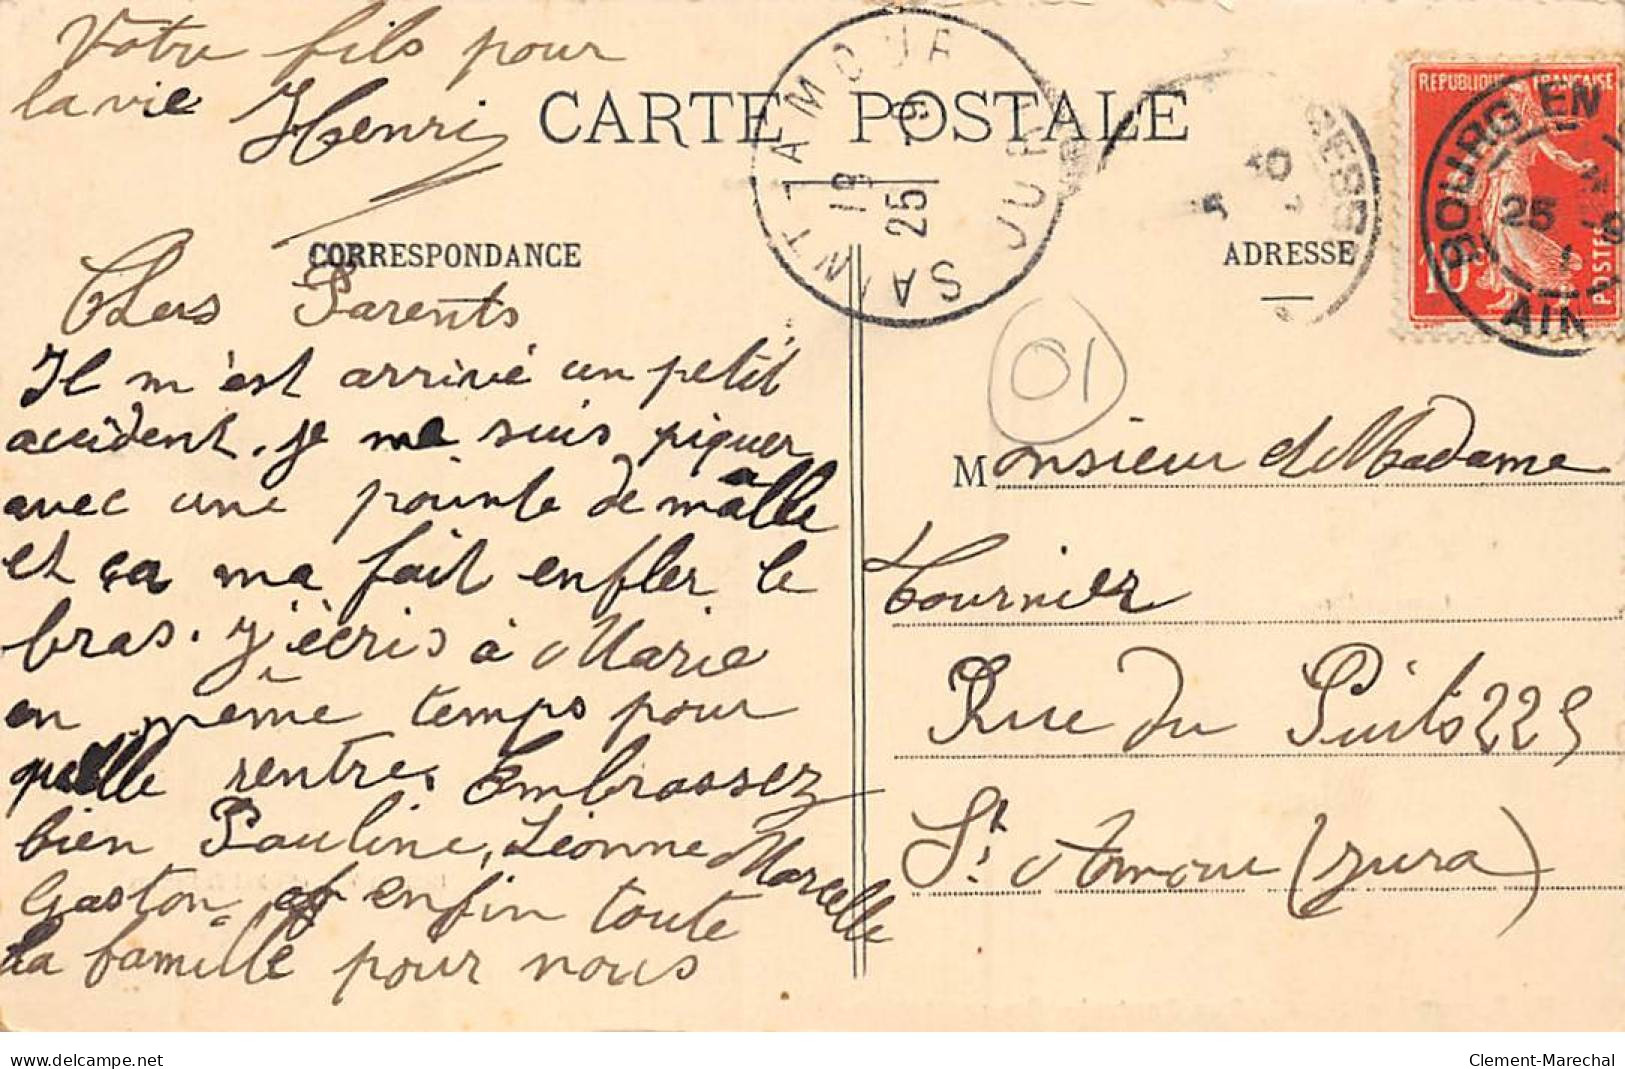 Votre fils pour
la vie Henri
CARTE POSTALE
SAINT-AMOUR
19
25 9
JURA
REPUBLIQUE FRANÇAISE
10c
POSTES
BOURG EN
25
AIN
CORRESPONDANCE
ADRESSE
01
Chers Parents
Il m'est arrivé un petit
accident. je me suis piquer
avec une pointe de malle
et ça ma fait enfler le
bras. j'écris à Marie
en même temps pour
quelle rentre. Embrassez
bien Pauline, Léonne Marcelle
Gaston et enfin toute
la famille pour nous
Monsieur et Madame
Tournier
Rue du Puits 225
St. Amour (Jura)
delcampe.net
Clement-Marechal